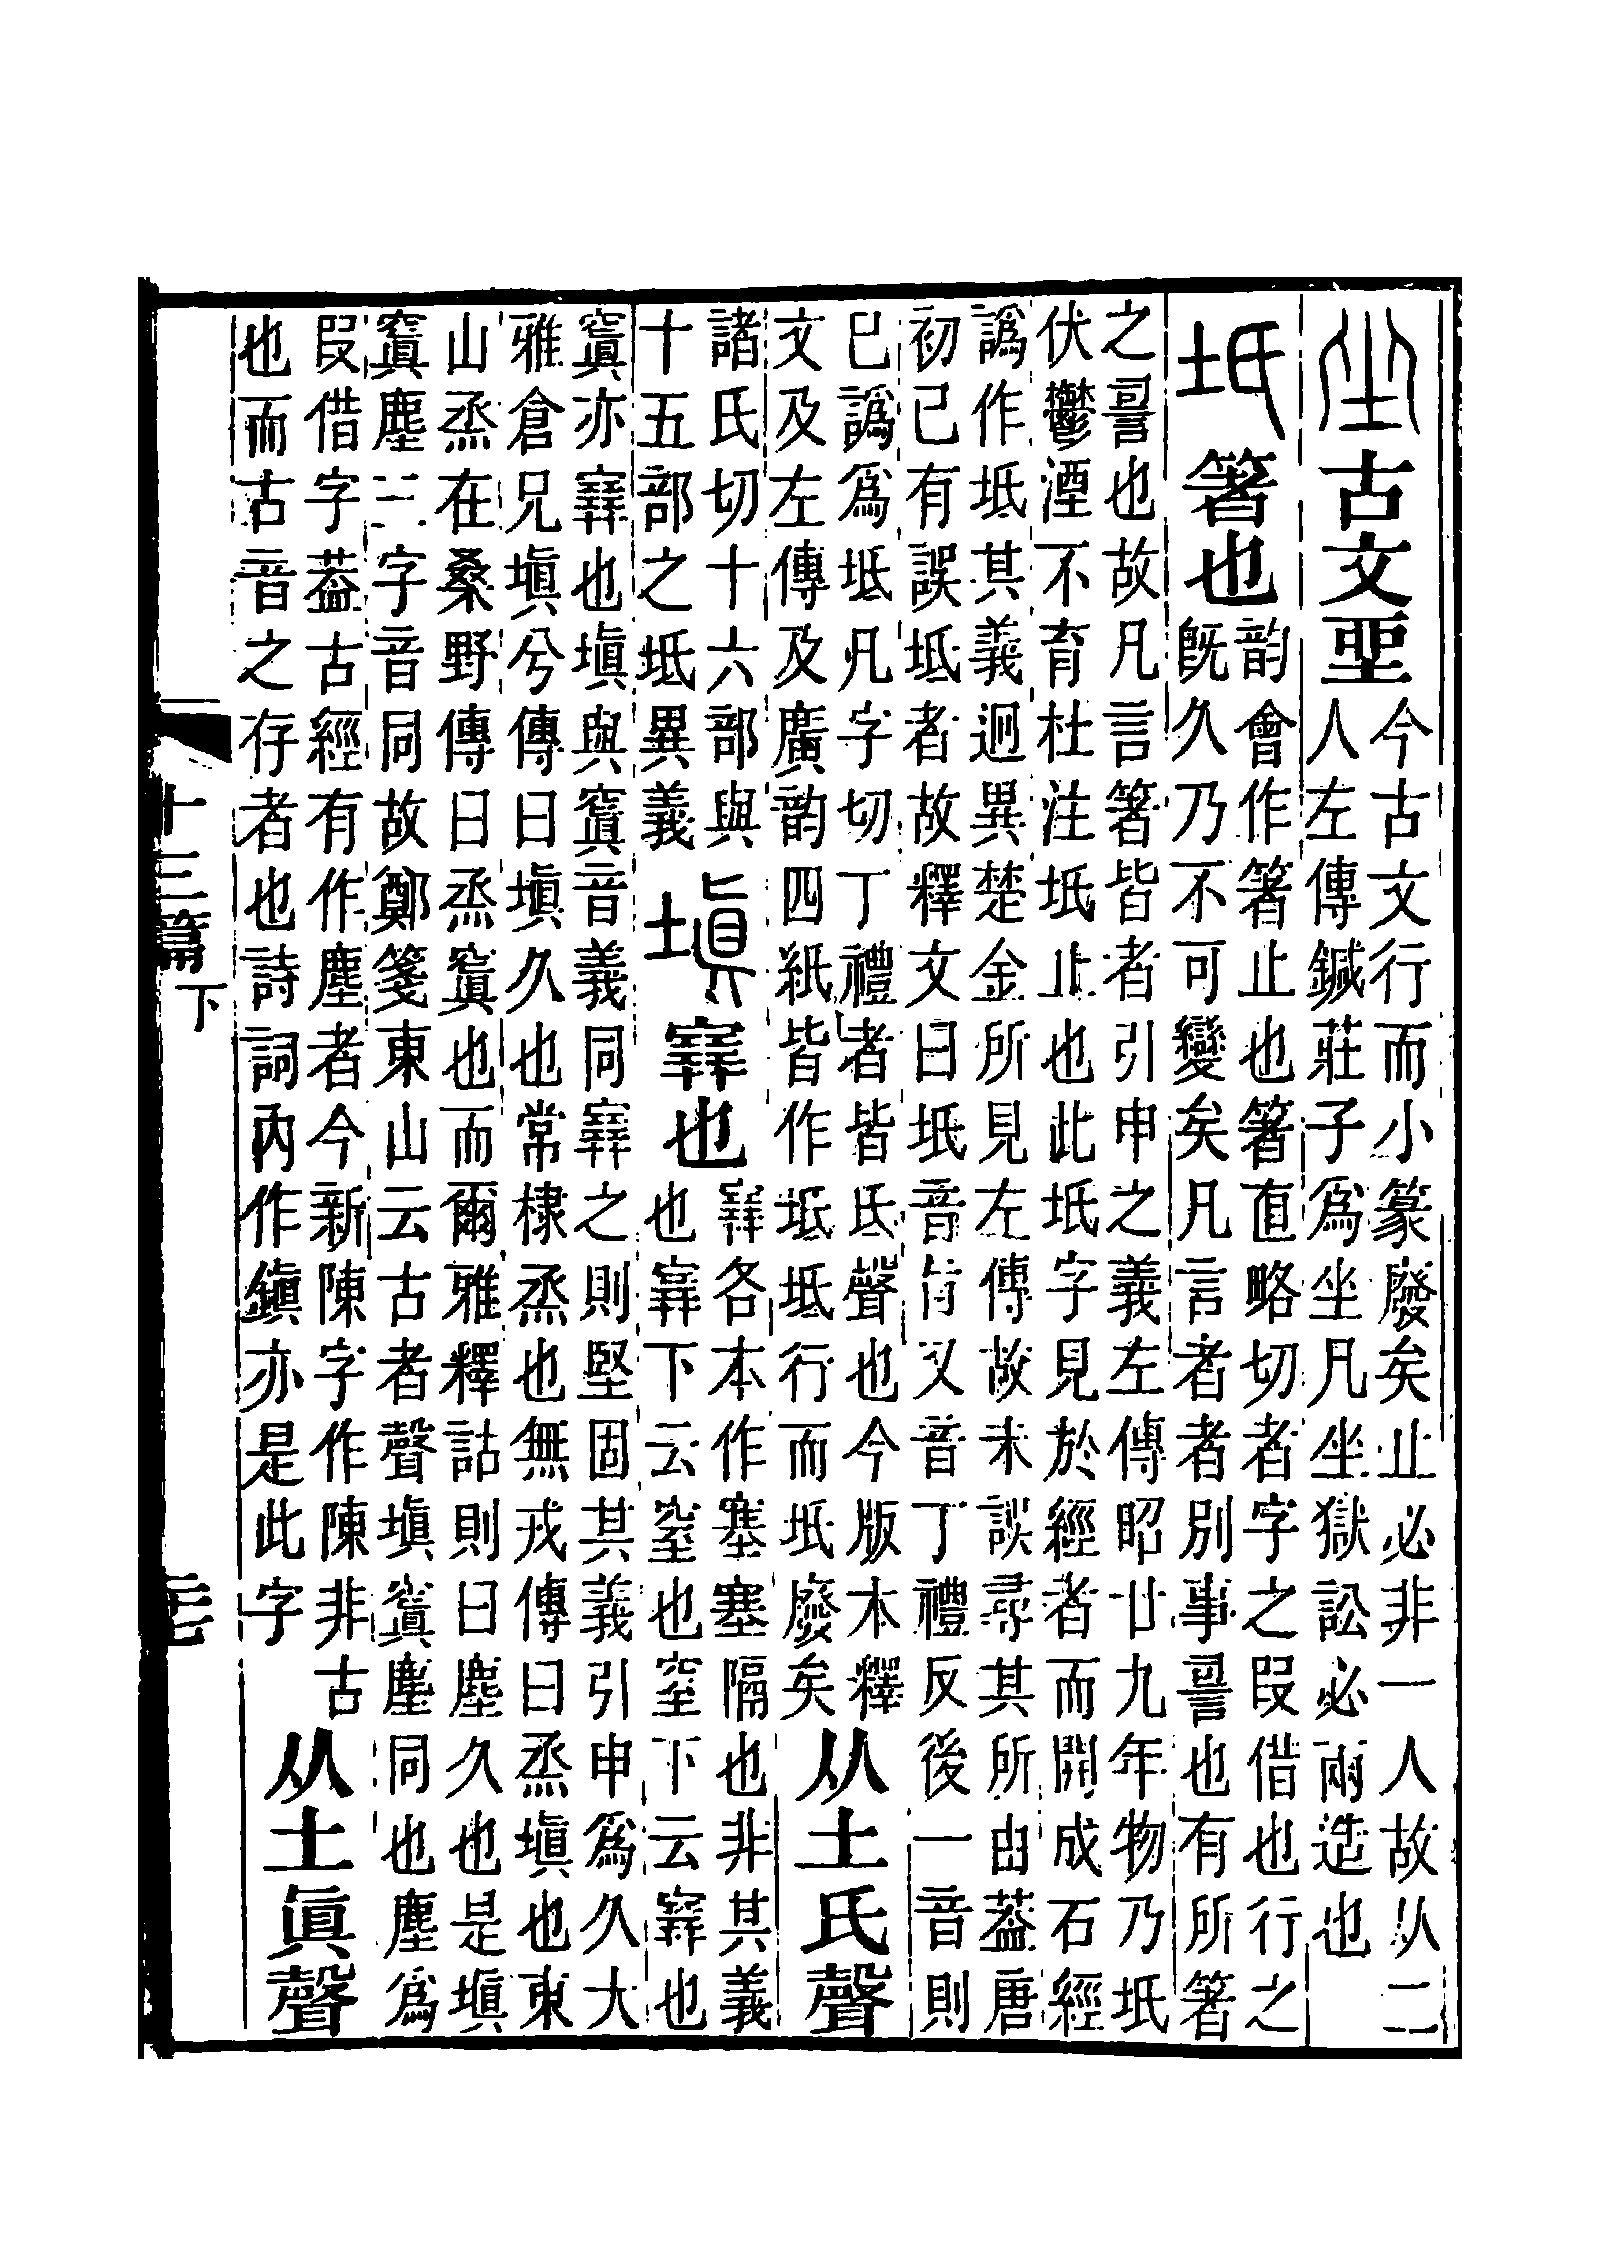 坐古文𡊎今古文行而小篆廢矣止必非一人故从二
人左傳鍼莊子爲坐凡坐獄訟必兩造也
坁箸也韵會作箸止也箸直略切者者字之叚借也行之
旣久乃不可變矣凡言者者別事䛐也有所箸
之䛐也故凡言箸皆者引申之義左傳昭廿九年物乃坁
伏鬱湮不育杜注坁止也此坁字見於經者而開成石經
譌作坻其義迥異楚金所見左傳故未誤尋其所由葢唐
初已有誤坻者故釋文曰坁音旨又音丁禮反後一音則
已譌爲坻凡字切丁禮者皆氐聲也今版本釋
文及左傳及廣韵四紙皆作坻坻行而坁廢矣从土氏聲
諸氏切十六部與
十五部之坻異義
塡㝪也㝪各本作塞塞隔也非其義
也㝪下云窒也窒下云㝪也
窴亦㝪也塡與窴音義同㝪之則堅固其義引申爲久大
雅倉兄塡兮傳曰塡久也常棣烝也無戎傳曰烝塡也東
山烝在桑野傳曰烝窴也而爾雅釋詁則曰塵久也是塡
窴塵三字音同故鄭箋東山云古者聲塡窴塵同也塵爲
叚借字葢古經有作塵者今新陳字作陳非古
也而古音之存者也詩詞內作鎭亦是此字从土眞聲
十三篇下